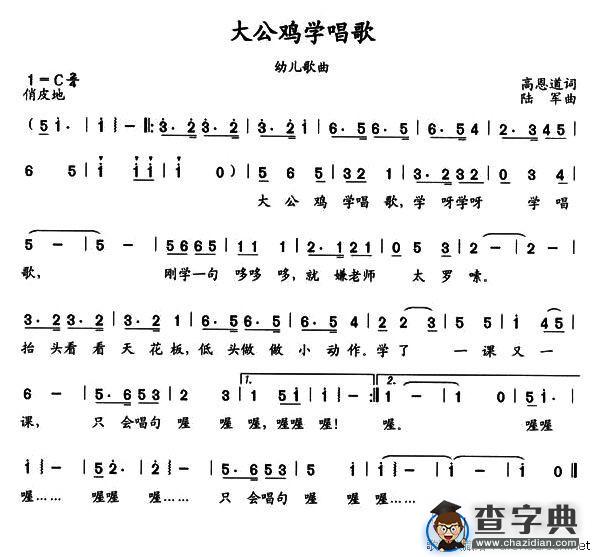 大公鸡学唱歌
幼儿歌曲
1=C
俏皮地
高恩道词
陆 军曲
( 5 1· | 1 | 1 - ‖: 3·2 3·2 | 3·2 1 | 6·5 6·5 | 6·5 4 | 2·3 4 5 |
6 5 | 1 1 1 | 1 0 ) | 5 6 5 | 5 6 5 1 | 6 5 6 5 | 0 3 4 |
大 公 鸡 学唱 歌,学 呀学呀 学 唱
5 - | 5 - | 5665 | 1 1 1 | 2·1 2 1 | 0 5 3 | 2 - | 2 - |
歌, 刚学一句 哆哆 哆,就 嫌老师 太 罗 嗦。
3·2 3·2 | 3·2 1 | 6·5 6·5 | 6·5 4 | 2 2 3 | 5 - | 5 1 | 4 5 |
抬 头看 看 天 花 板,低 头做 做 小 动作。学 了 一 课 又 一
6 - | 5·6 5 3 | 2 3 | 1 5 1 | 1 - :‖ 1 - | 1 0 | 5 1· |
1.
2.
课, 只 会唱句 喔 喔 喔,喔喔 喔! 喔。 喔喔
1 - | 5 2· | 2 - | 5·6 5 3 | 2 3 | 1 - | 1 0 ‖
喔…… 喔喔 喔…… 只 会唱句 喔 喔 喔……
查字典
www.chazidian.com